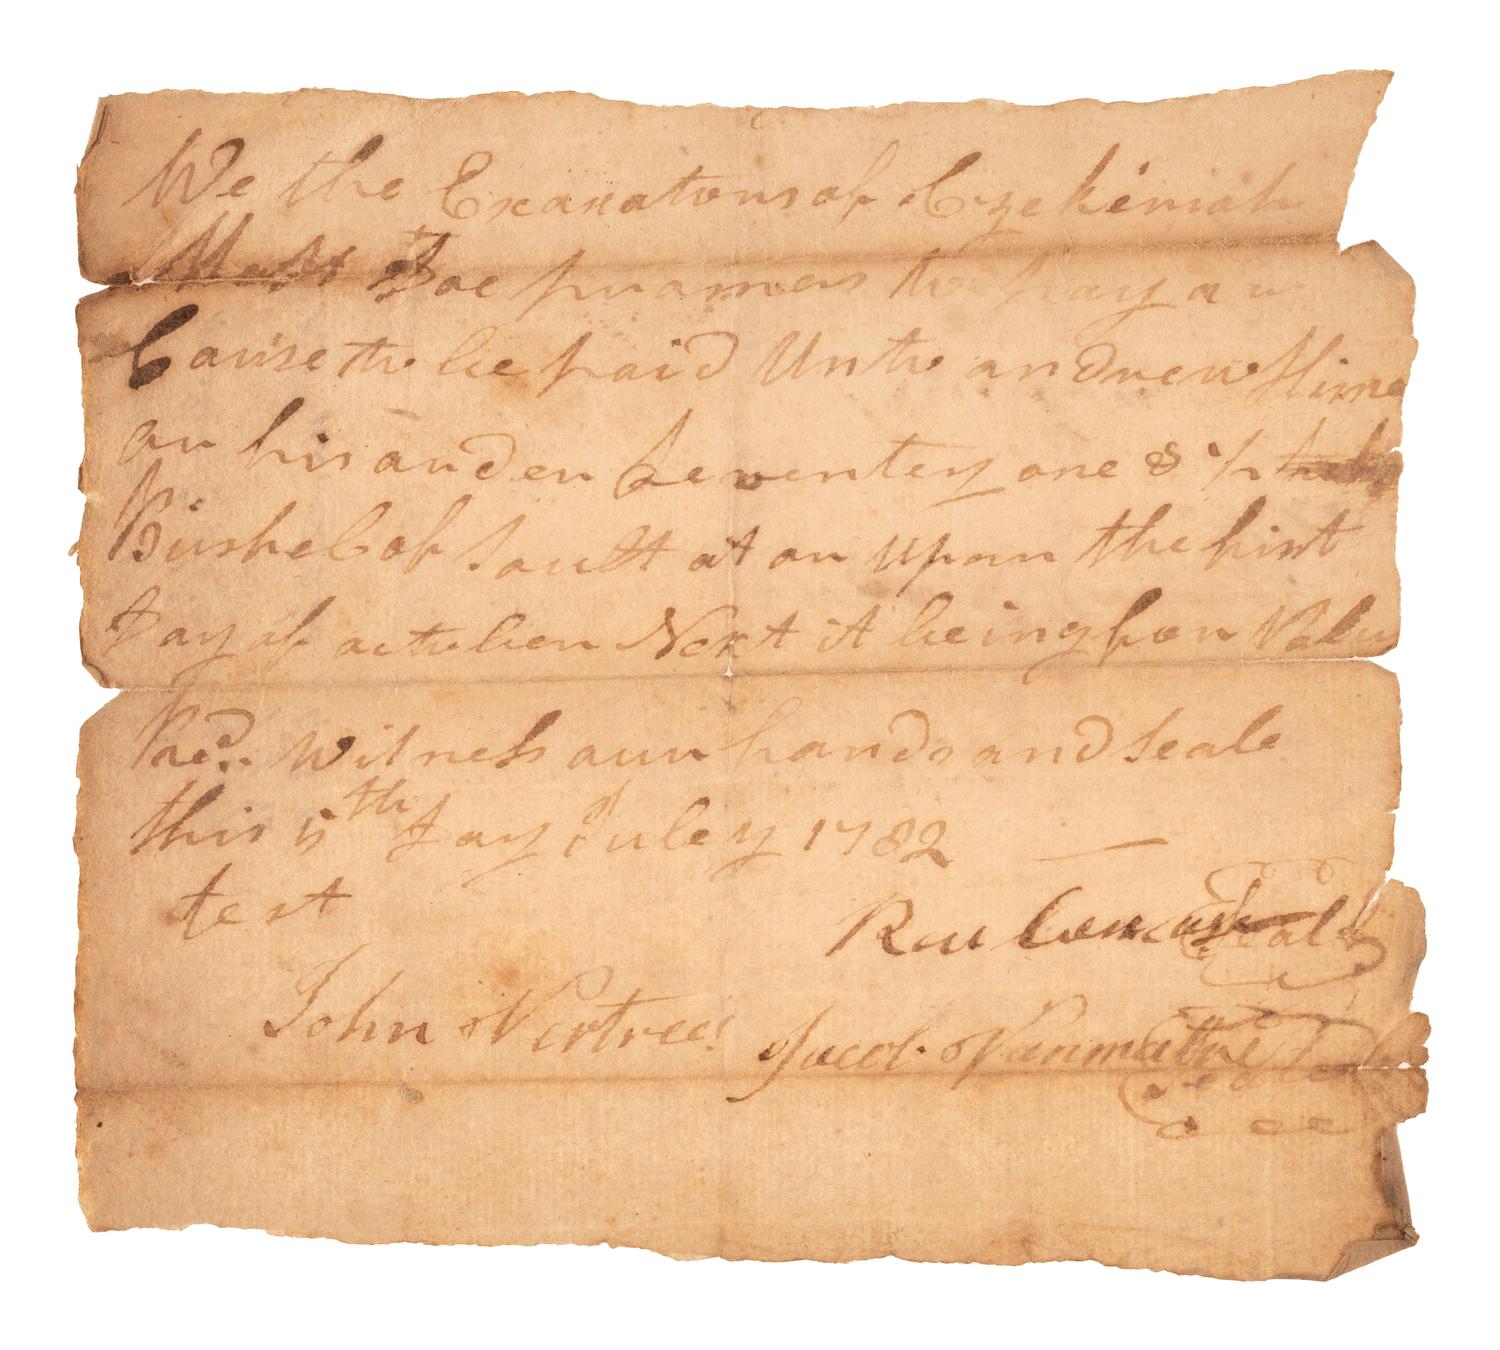 We the Excxators of Ezekiniah
Doe promers to pay or
Cause to be paid Unto andrew Hine
or his order Seventey one & 1/2
Bushel of Sault at or upon the first
Day of october Next it being for Valu
Red. Witness our hands and Seale
this 5th Day Juley 1782
test
Seal
John Vertrees Jacob Vanmatre
Seale